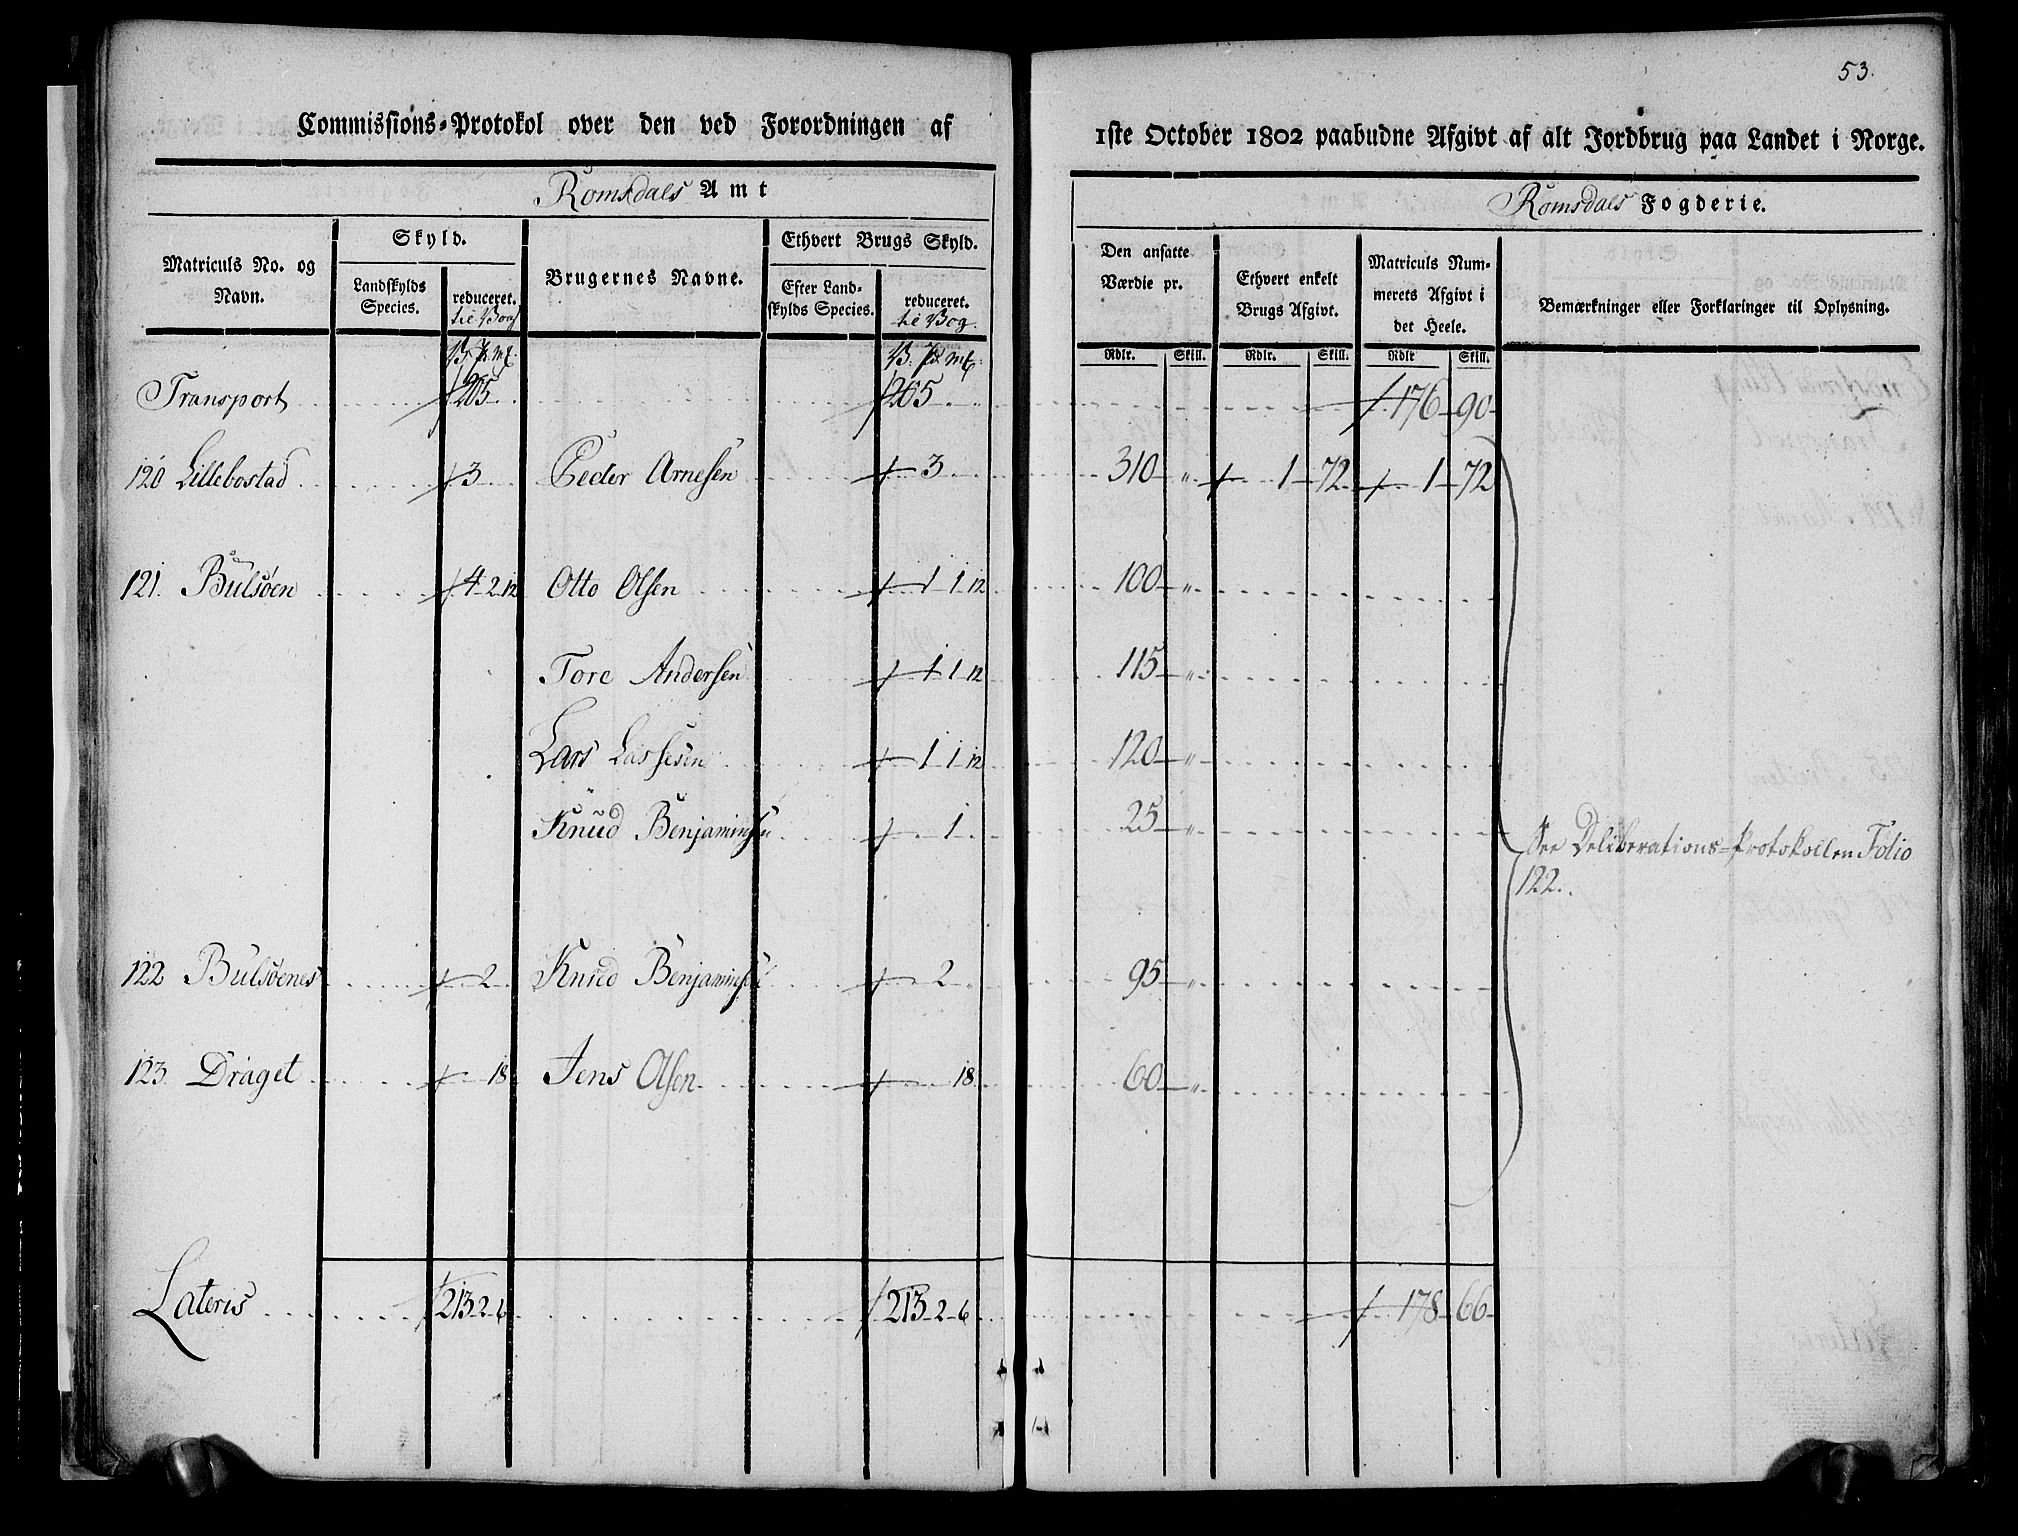 53.
Commissions-Protokol over den ved Forordningen af
1ste October 1802 paabudne Afgivt af alt Jordbrug paa Landet i Norge.
Romsdals Amt
Romsdals Fogderie.
Matriculs No. og Navn.
Skyld.
Landskylds Species.
reduceret. til Vog
Brugernes Navne.
Ethvert Brugs Skyld.
Efter Landskylds Species.
reduceret. til Vog.
Den ansatte Værdie pr.
Ethvert enkelt Brugs Afgivt.
Matriculs Nummerets Afgivt i det Heele.
Bemærkninger eller Forklaringer til Oplysning.
Rdlr. Skill. Rdlr. Skill. Rdlr Skill.
Transport 205 205 176 90
120 Lillebostad 3 Peder Arnesen 3 310 " 1 72 1 72
121. Bulsøen 4 2 12 Otto Olsen 1 1 12 100 "
Tore Andersen 1 1 12 115 "
Lars Lassesen 1 1 12 120 "
Knud Benjaminsen 1 25 "
See Deliberations-Protokollen Folio
122.
122 Bulsøenes 2 Knud Benjaminsen 2 95 "
123. Draget 18 Jens Olsen 18 60 "
Lateris 213 2 6 213 2 6 178 66